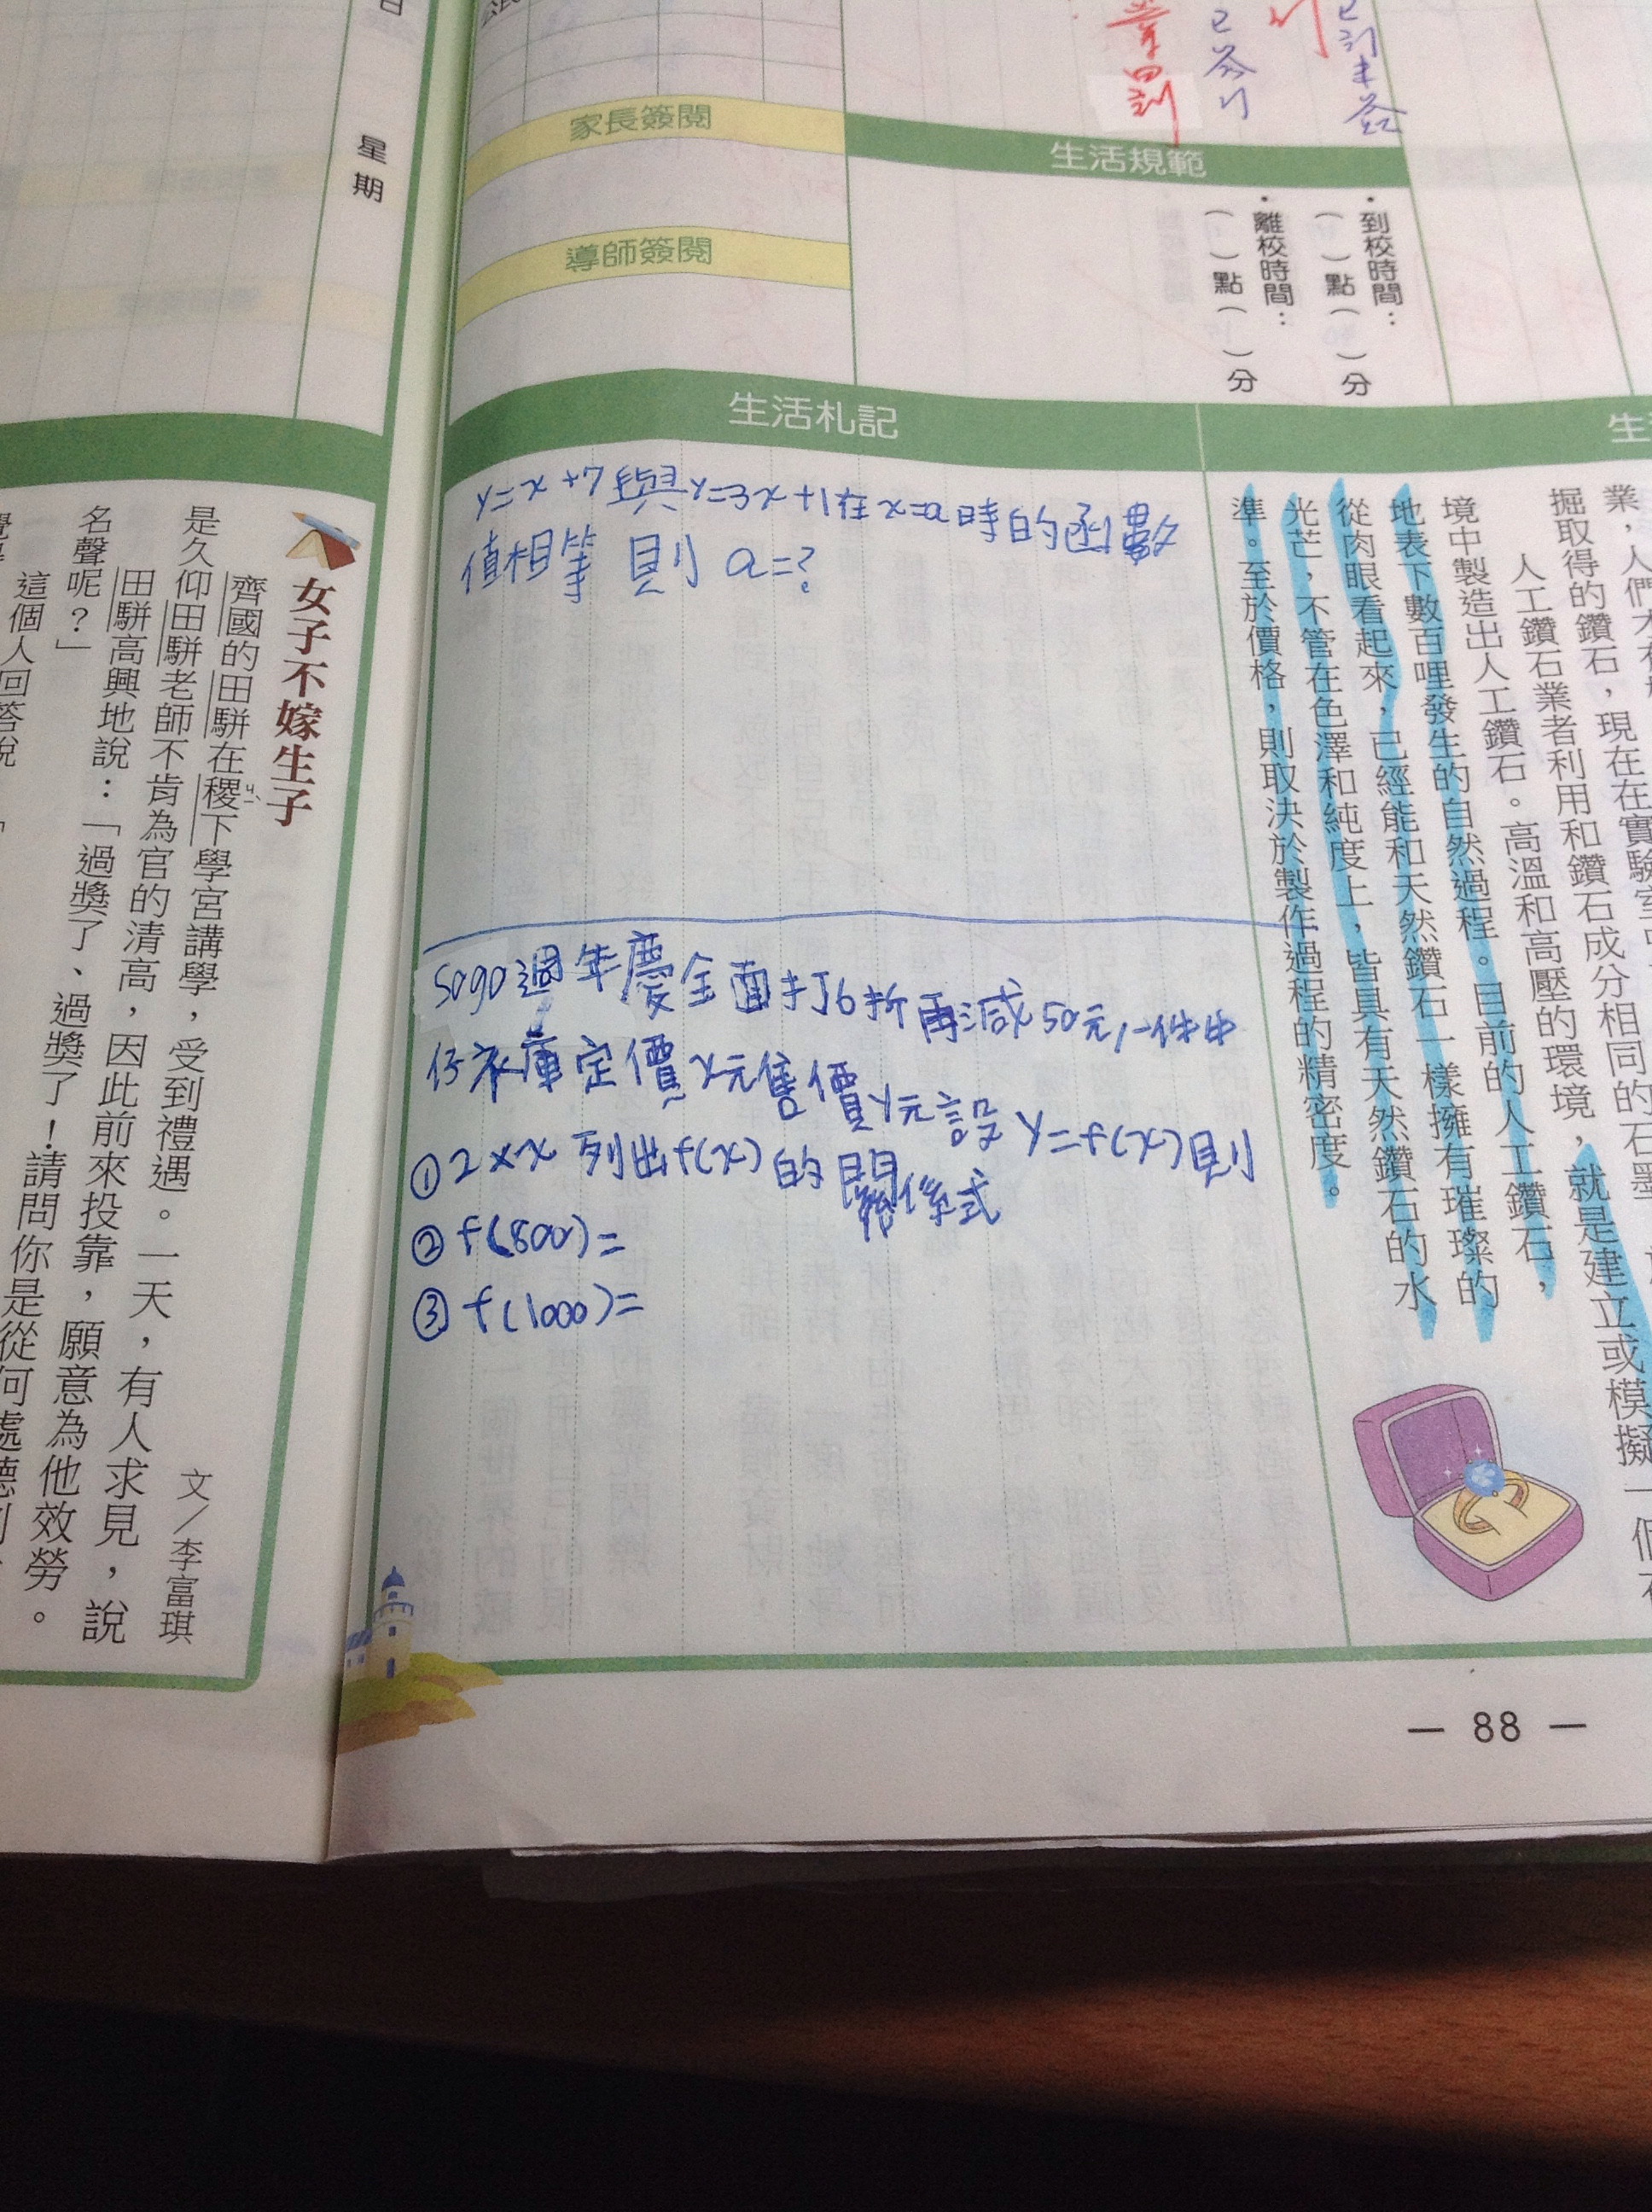 日
星期
家長簽閱
導師簽閱
已簽
生活規範
・到校時間：
（ ）點（ ）分
・離校時間：
（ ）點（ ）分
生活札記
y=x+7與y=3x+1在x=a時的函數
值相等 則 a=?
sogo週年慶全面打6折再減50元,一件牛
仔衣庫定價x元售價y元設 y=f(x)則
①2xx 列出f(x)的關係式
②f(800)=
③f(1000)=
掘取得的鑽石，現在在實驗室中
人工鑽石業者利用和鑽石成分相同的石墨
境中製造出人工鑽石。高溫和高壓的環境，就是建立或模擬一個
地表下數百哩發生的自然過程。目前的人工鑽石，
從肉眼看起來，已經能和天然鑽石一樣擁有璀璨的
光芒，不管在色澤和純度上，皆具有天然鑽石的水
準。至於價格，則取決於製作過程的精密度。
— 88 —
女子不嫁生子
文／李富琪
齊國的田駢在稷下學宮講學，受到禮遇。一天，有人求見，說
是久仰田駢老師不肯為官的清高，因此前來投靠，願意為他效勞。
田駢高興地說：「過獎了、過獎了！請問你是從何處聽到
名聲呢？」
這個人回答說